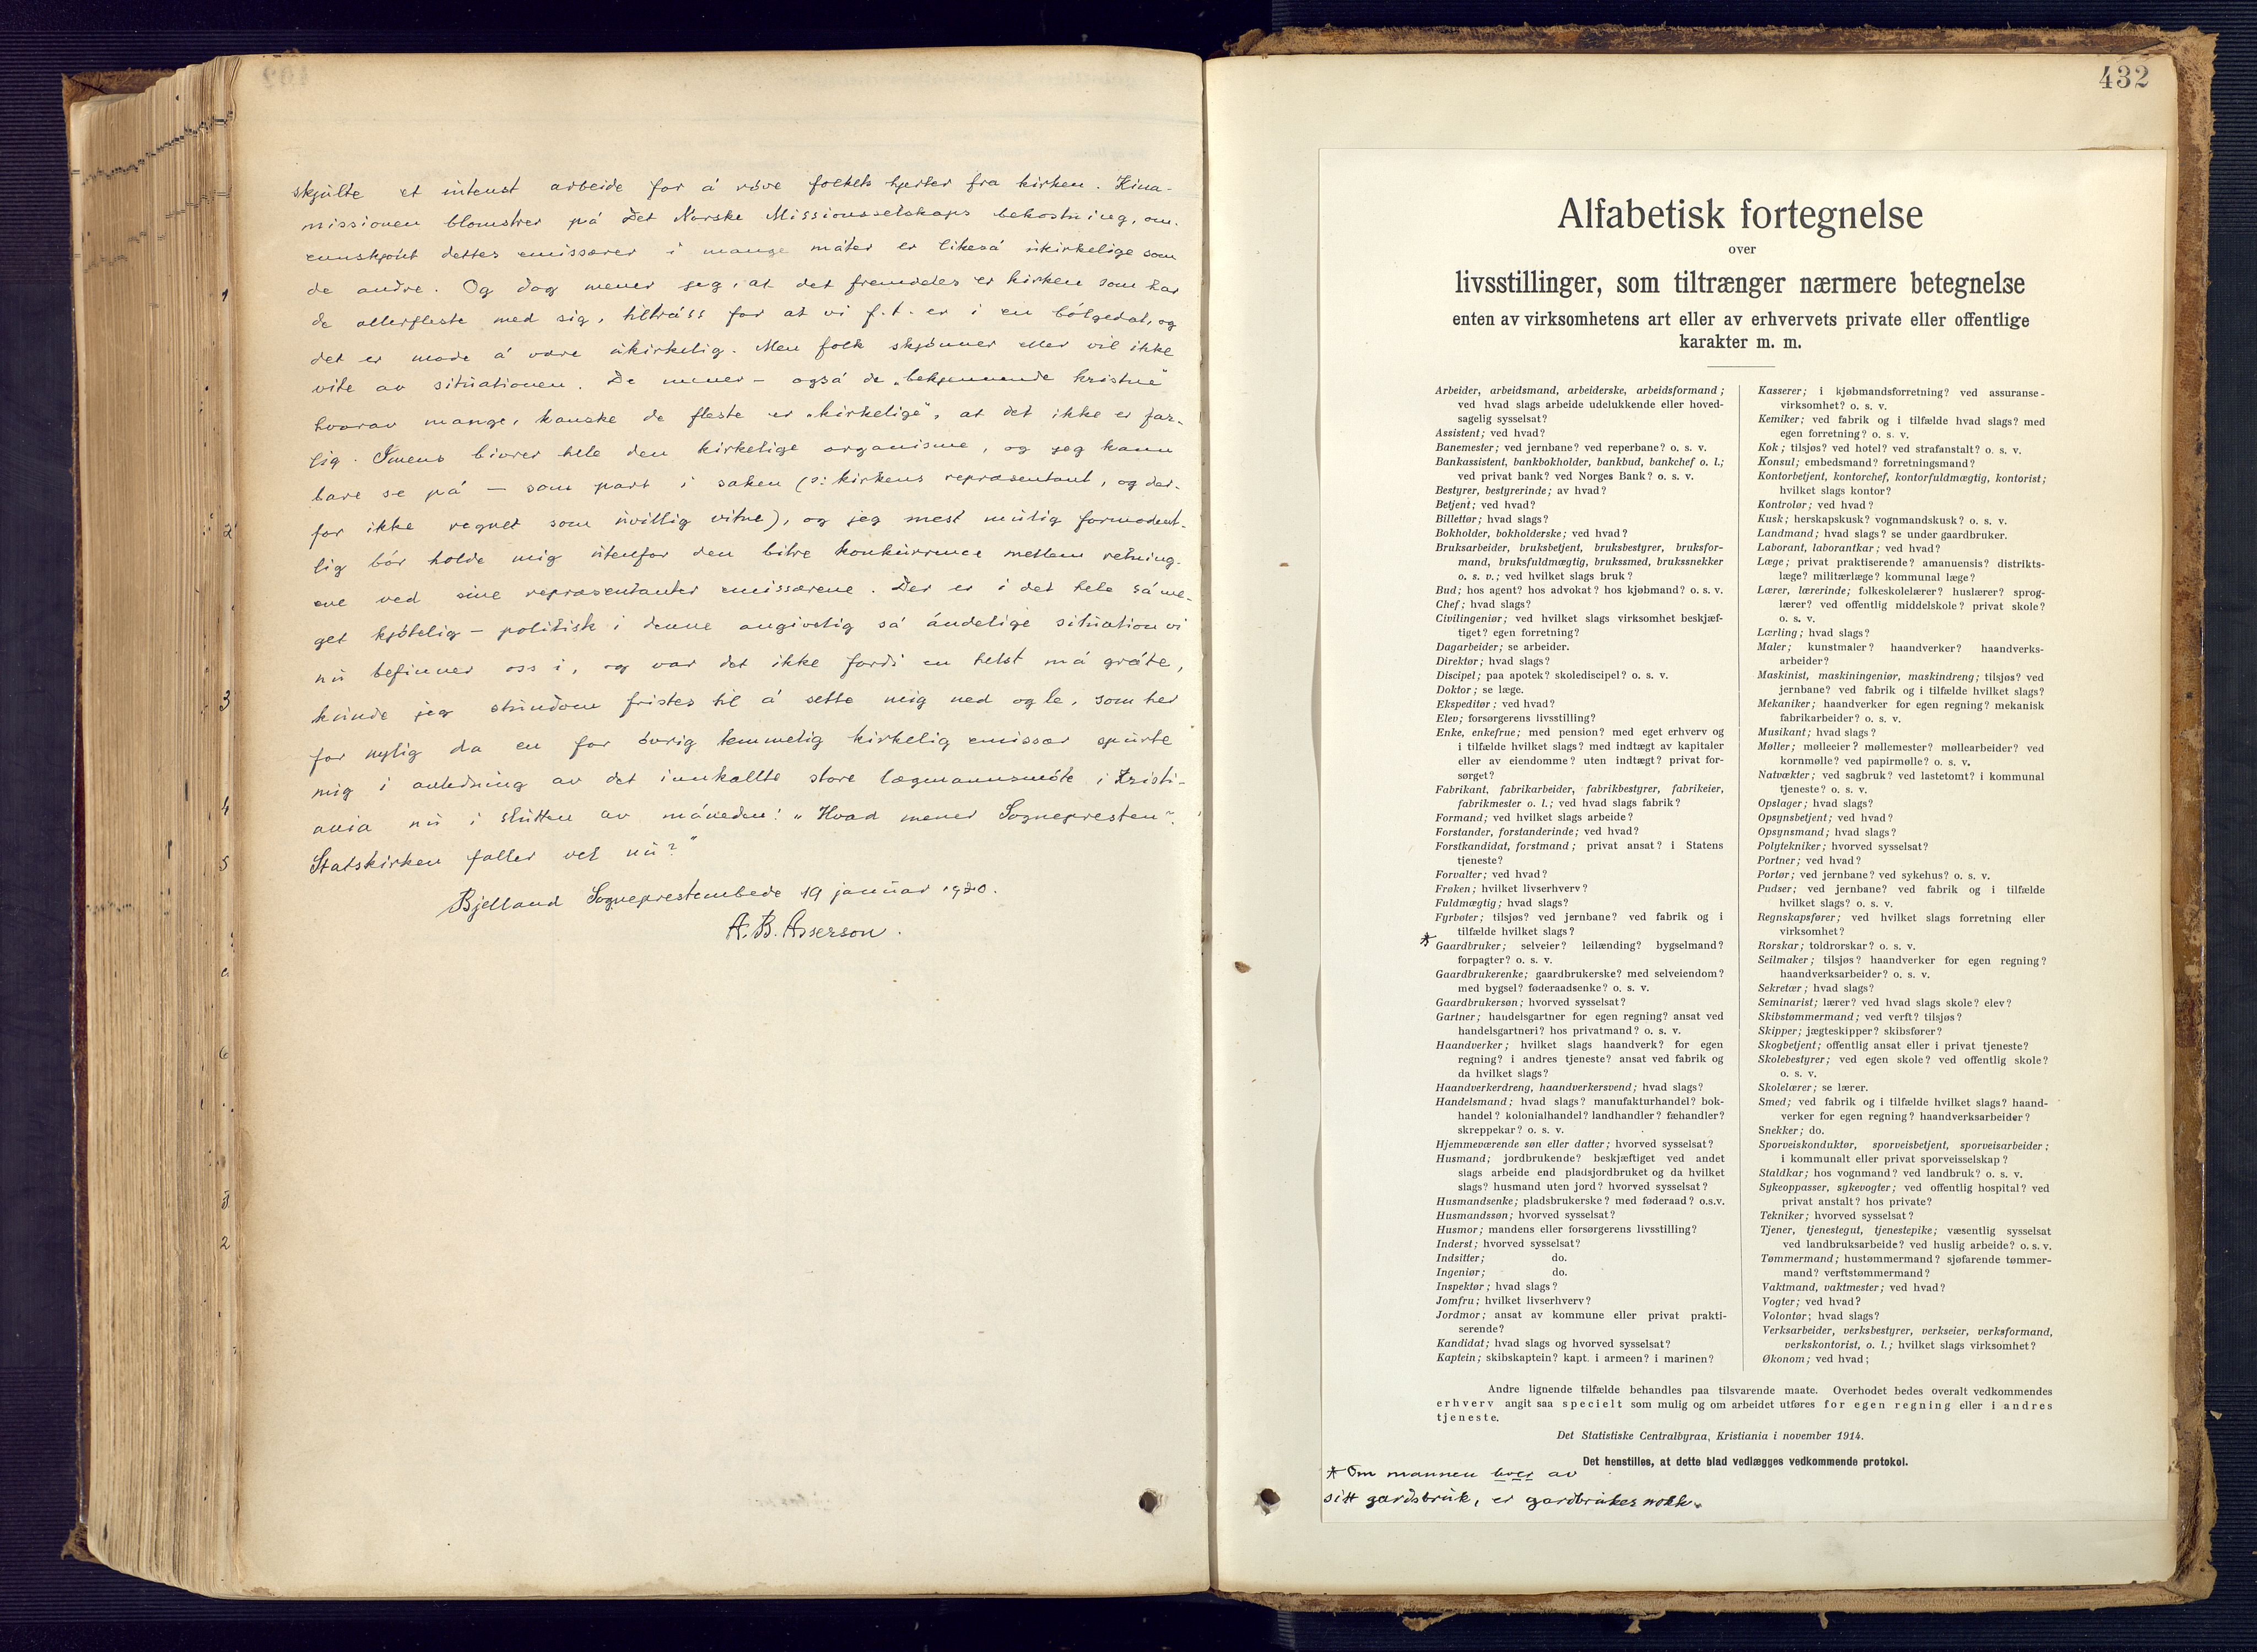 skjulte et intenst arbeide for å röve folkets hjerter fra kirken. Kina-
missionen blomstrer på Det Norske Missionsselskaps bekostning, om-
ennskjönt dettes emissærer i mange måter er likeså ukirkelige som
de andre. Og dog mener jeg, at det fremdeles er kirken som har
de allerfleste med sig, tiltråss for at vi f. t. er i en bölgedal, og
det er mode å være ukirkelig. Men folk skjönner eller vil ikke
vite av situationen. De mener – også de „bekjennende kristne"
hvorav mange, kanske de fleste er „kirkelige", at det ikke er far-
lig. Imens bivrer hele den kirkelige organisme, og jeg kann
bare se på – som part i saken (ɔ: kirkens repræsentant, og der-
for ikke regnet som uvillig vitne), og jeg mest mulig formodent-
lig bör holde mig utenfor den bitre konkurrence mellem retning-
ene ved sine repræsentanter emissærene. Der er i det hele så me-
get kjötelig – politisk i denne angivelig så åndelige situation vi
nu befinner oss i, og var det ikke fordi en helst må gråte,
kunde jeg stundom fristes til å sette mig ned og le, som her
for nylig da en for övrig temmelig kirkelig emissær spurte
mig i anledning av det innkallte store lægmannsmöte i Kristi-
ania nu i slutten av måneden: „Hvad mener Sognepresten?
Statskirken faller vel nu?"
Bjelland Sogneprestembede 19 januar 1920.
A. B. Asserson.
432
Alfabetisk fortegnelse
over
livsstillinger, som tiltrænger nærmere betegnelse
enten av virksomhetens art eller av erhvervets private eller offentlige
karakter m. m.
Arbeider, arbeidsmand, arbeiderske, arbeidsformand;
ved hvad slags arbeide udelukkende eller hoved-
sagelig sysselsat?
Assistent; ved hvad?
Banemester; ved jernbane? ved reperbane? o. s. v.
Bankassistent, bankbokholder, bankbud, bankchef o. l.;
ved privat bank? ved Norges Bank? o. s. v.
Bestyrer, bestyrerinde; av hvad?
Betjent; ved hvad?
Billettør; hvad slags?
Bokholder, bokholderske; ved hvad?
Bruksarbeider, bruksbetjent, bruksbestyrer, bruksfor-
mand, bruksfuldmægtig, brukssmed, brukssnekker
o. s. v.; ved hvilket slags bruk?
Bud; hos agent? hos advokat? hos kjøbmand? o. s. v.
Chef; hvad slags?
Civilingeniør; ved hvilket slags virksomhet beskjæf-
tiget? egen forretning?
Dagarbeider; se arbeider.
Direktør; hvad slags?
Discipel; paa apotek? skolediscipel? o. s. v.
Doktor; se læge.
Ekspeditør; ved hvad?
Elev; forsørgerens livsstilling?
Enke, enkefrue; med pension? med eget erhverv og
i tilfælde hvilket slags? med indtægt av kapitaler
eller av eiendomme? uten indtægt? privat for-
sørget?
Fabrikant, fabrikarbeider, fabrikbestyrer, fabrikeier,
fabrikmester o. l.; ved hvad slags fabrik?
Formand; ved hvilket slags arbeide?
Forstander, forstanderinde; ved hvad?
Forstkandidat, forstmand; privat ansat? i Statens
tjeneste?
Forvalter; ved hvad?
Frøken; hvilket livserhverv?
Fuldmægtig; hvad slags?
Fyrbøter; tilsjøs? ved jernbane? ved fabrik og i
tilfælde hvilket slags?
* Gaardbruker; selveier? leilænding? bygselmand?
forpagter? o. s. v.
Gaardbrukerenke; gaardbrukerske? med selveiendom?
med bygsel? føderaadsenke? o. s. v.
Gaardbrukersøn; hvorved sysselsat?
Gartner; handelsgartner for egen regning? ansat ved
handelsgartneri? hos privatmand? o. s. v.
Haandverker; hvilket slags haandverk? for egen
regning? i andres tjeneste? ansat ved fabrik og
da hvilket slags?
Haandverkerdreng, haandverkersvend; hvad slags?
Handelsmand; hvad slags? manufakturhandel? bok-
handel? kolonialhandel? landhandler? fæhandler?
skreppekar? o. s. v.
Hjemmeværende søn eller datter; hvorved sysselsat?
Husmand; jordbrukende? beskjæftiget ved andet
slags arbeide end pladsjordbruket og da hvilket
slags? husmand uten jord? hvorved sysselsat?
Husmandsenke; pladsbrukerske? med føderaad? o.s.v.
Husmandssøn; hvorved sysselsat?
Husmor; mandens eller forsørgerens livsstilling?
Inderst; hvorved sysselsat?
Indsitter; do.
Ingeniør; do.
Inspektør; hvad slags?
Jomfru; hvilket livserhverv?
Jordmor; ansat av kommune eller privat prakti-
serende?
Kandidat; hvad slags og hvorved sysselsat?
Kaptein; skibskaptein? kapt. i armeen? i marinen?
Kasserer; i kjøbmandsforretning? ved assuranse-
virksomhet? o. s. v.
Kemiker; ved fabrik og i tilfælde hvad slags? med
egen forretning? o. s. v.
Kok; tilsjøs? ved hotel? ved strafanstalt? o. s. v.
Konsul; embedsmand? forretningsmand?
Kontorbetjent, kontorchef, kontorfuldmægtig, kontorist;
hvilket slags kontor?
Kontrolør; ved hvad?
Kusk; herskapskusk? vognmandskusk? o. s. v.
Landmand; hvad slags? se under gaardbruker.
Laborant, laborantkar; ved hvad?
Læge; privat praktiserende? amanuensis? distrikts-
læge? militærlæge? kommunal læge?
Lærer, lærerinde; folkeskolelærer? huslærer? sprog-
lærer? ved offentlig middelskole? privat skole?
o. s. v.
Lærling; hvad slags?
Maler; kunstmaler? haandverker? haandverks-
arbeider?
Maskinist, maskiningeniør, maskindreng; tilsjøs? ved
jernbane? ved fabrik og i tilfælde hvilket slags?
Mekaniker; haandverker for egen regning? mekanisk
fabrikarbeider? o. s. v.
Musikant; hvad slags?
Møller; mølleeier? møllemester? møllearbeider? ved
kornmølle? ved papirmølle? o. s. v.
Natvækter; ved sagbruk? ved lastetomt? i kommunal
tjeneste? o. s. v.
Opslager; hvad slags?
Opsynsbetjent; ved hvad?
Opsynsmand; hvad slags?
Polytekniker; hvorved sysselsat?
Portner; ved hvad?
Portør; ved jernbane? ved sykehus? o. s. v.
Pudser; ved jernbane? ved fabrik og i tilfælde
hvilket slags? o. s. v.
Regnskapsfører; ved hvilket slags forretning eller
virksomhet?
Rorskar; toldrorskar? o. s. v.
Seilmaker; tilsjøs? haandverker for egen regning?
haandverksarbeider? o. s. v.
Sekretær; hvad slags?
Seminarist; lærer? ved hvad slags skole? elev?
Skibstømmermand; ved verft? tilsjøs?
Skipper; jægteskipper? skibsfører?
Skogbetjent; offentlig ansat eller i privat tjeneste?
Skolebestyrer; ved egen skole? ved offentlig skole?
o. s. v.
Skolelærer; se lærer.
Smed; ved fabrik og i tilfælde hvilket slags? haand-
verker for egen regning? haandverksarbeider?
Snekker; do.
Sporveiskonduktør, sporveisbetjent, sporveisarbeider;
i kommunalt eller privat sporveisselskap?
Staldkar; hos vognmand? ved landbruk? o. s. v.
Sykeoppasser, sykevogter; ved offentlig hospital? ved
privat anstalt? hos private?
Tekniker; hvorved sysselsat?
Tjener, tjenestegut, tjenestepike; væsentlig sysselsat
ved landbruksarbeide? ved huslig arbeide? o. s. v.
Tømmermand; hustømmermand? sjøfarende tømmer-
mand? verftstømmermand?
Vaktmand, vaktmester; ved hvad?
Vogter; ved hvad?
Volontør; hvad slags?
Verksarbeider, verksbestyrer, verkseier, verksformand,
verkskontorist, o. l.; hvilket slags virksomhet?
Økonom; ved hvad;
Andre lignende tilfælde behandles paa tilsvarende maate. Overhodet bedes overalt vedkommendes
erhverv angit saa specielt som mulig og om arbeidet utføres for egen regning eller i andres
tjeneste.
Det Statistiske Centralbyraa, Kristiania i november 1914.
Det henstilles, at dette blad vedlægges vedkommende protokol.
* Om mannen lever av
sitt gardsbruk, er gardbruker nokk.